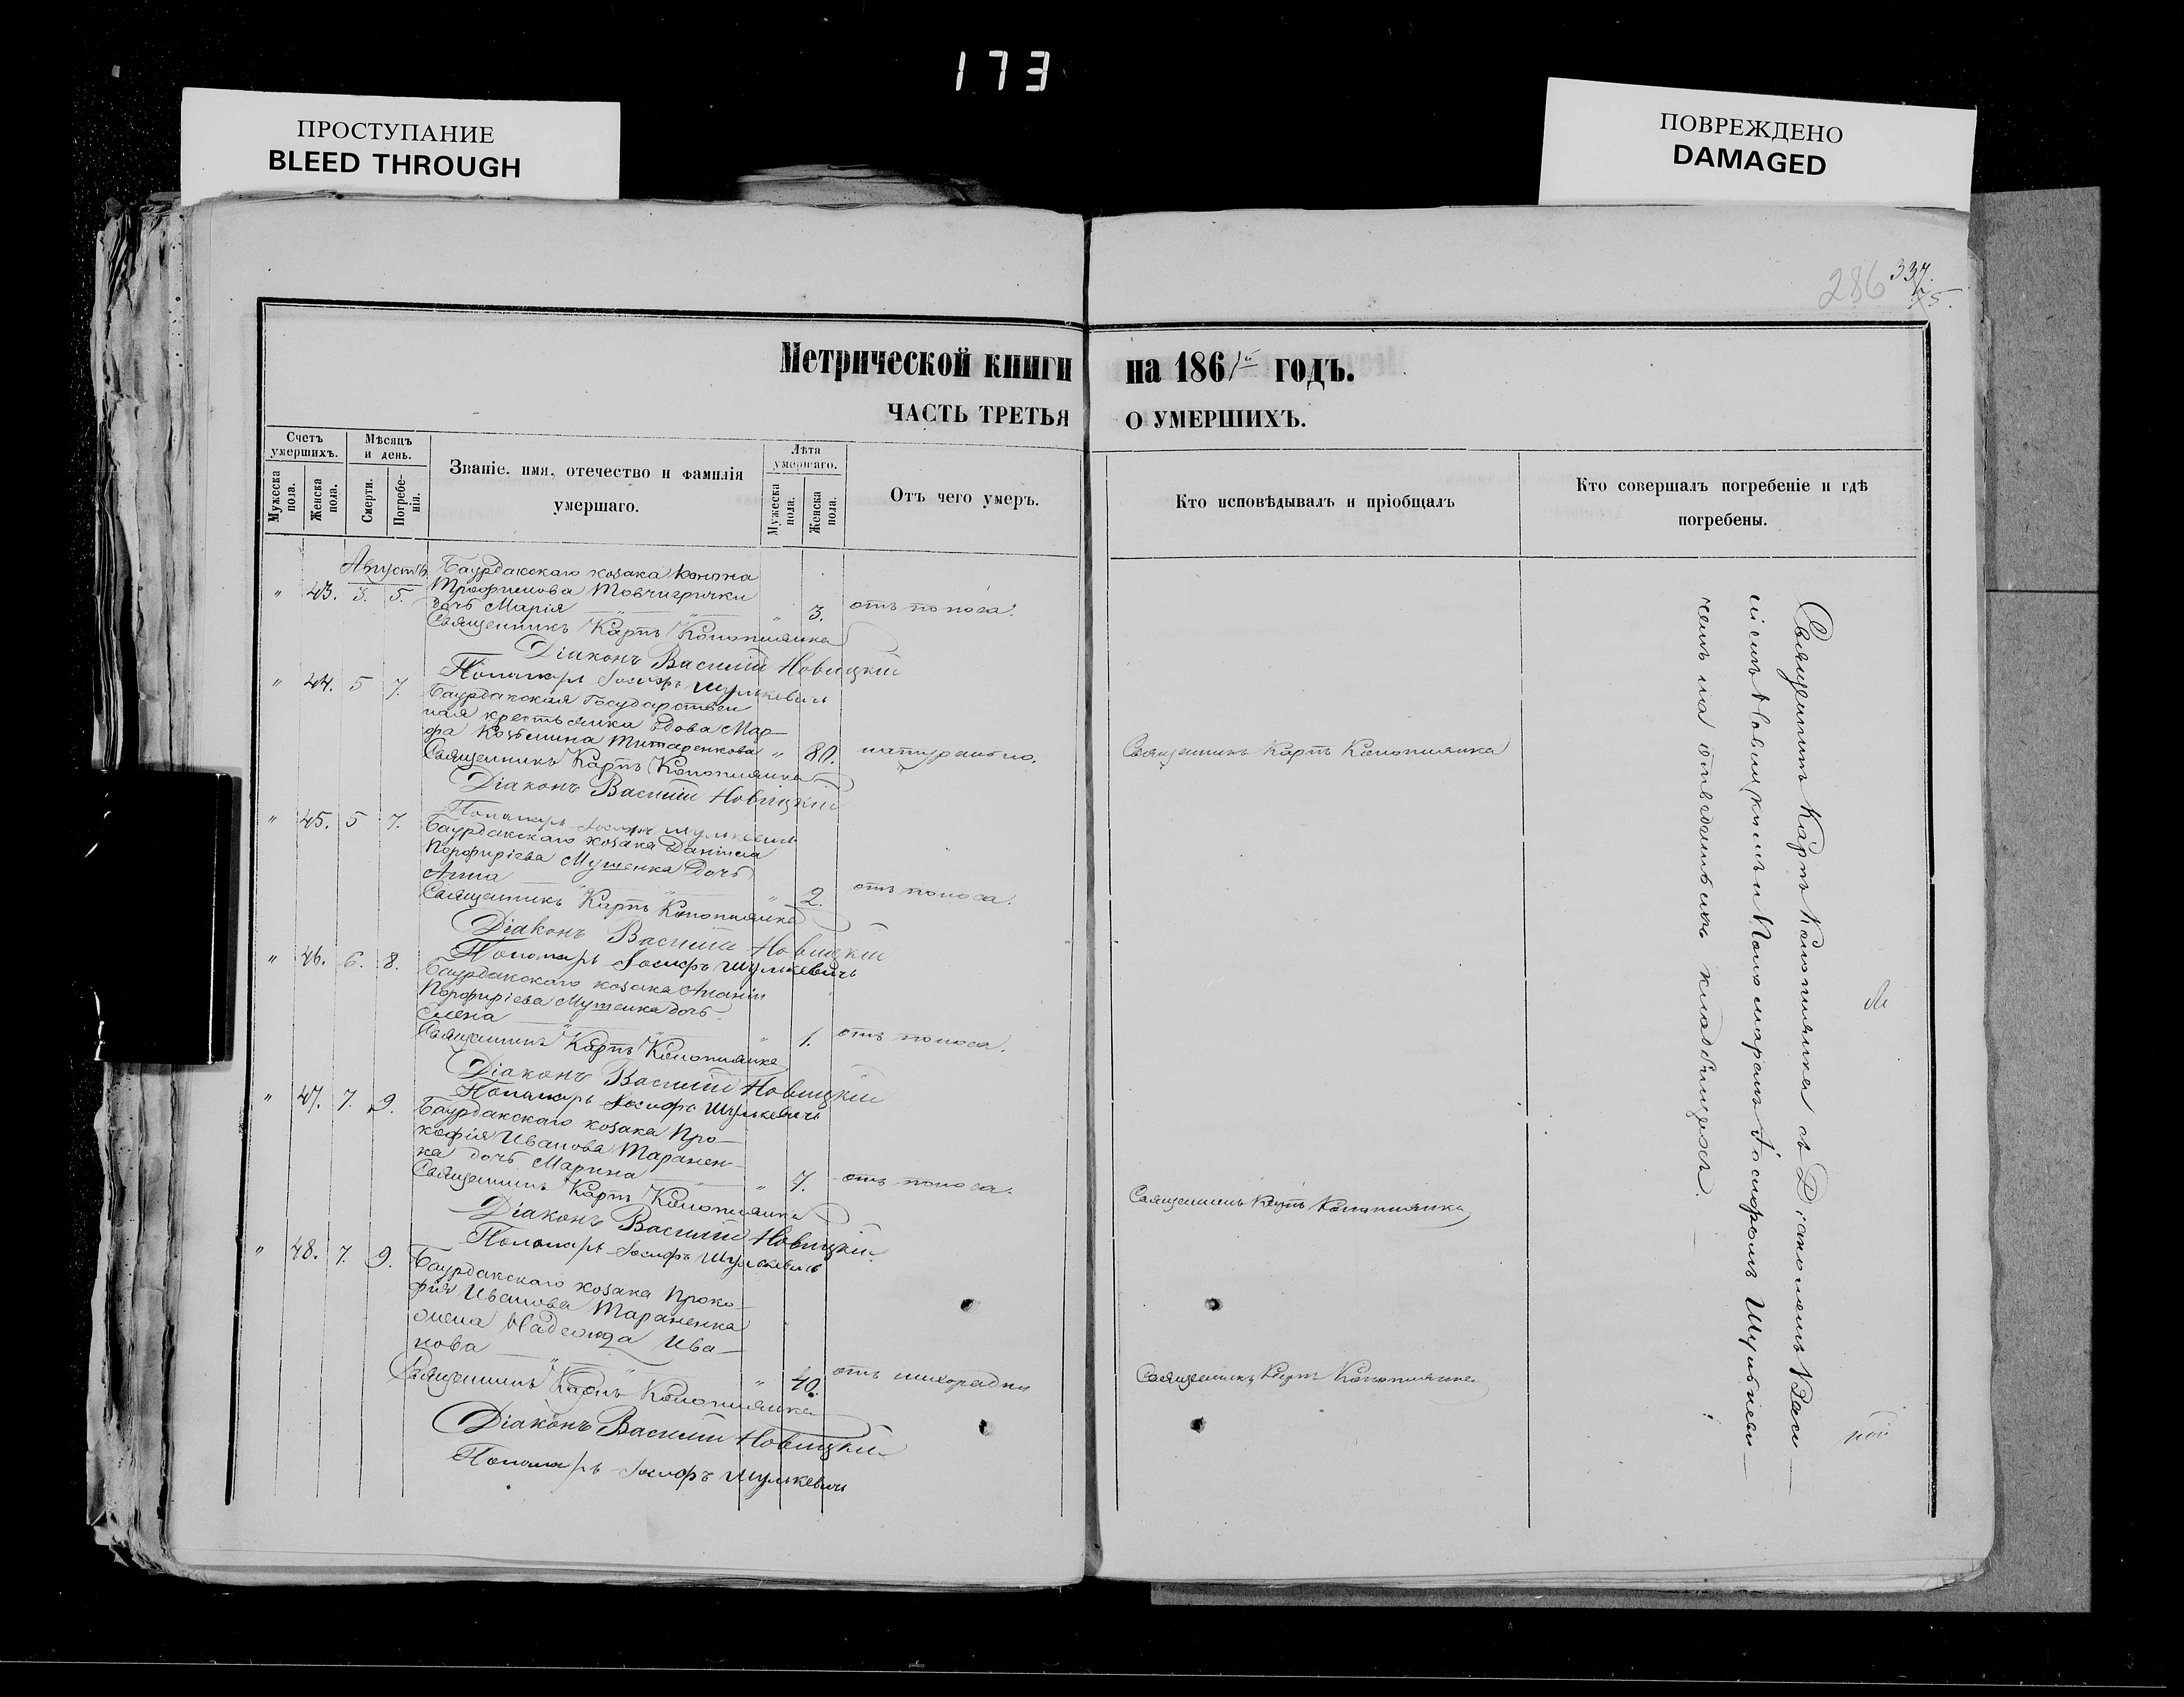 173
ПРОСТУПАНИЕ
BLEED THROUGH
ПОВРЕЖДЕНО
DAMAGED
286 337.
75.
Метрической книги на 1861й годъ.
ЧАСТЬ ТРЕТЬЯ О УМЕРШИХЪ.
Счетъ умершихъ.
Мужеска пола.
Женска пола.
Мѣсяцъ и день.
Смерти.
Погребенія.
Званіе, имя, отечество и фамилія
умершаго.
Лѣта умершаго.
Мужеска пола.
Женска пола.
Отъ чего умеръ.
Кто исповѣдывалъ и пріобщалъ
Кто совершалъ погребеніе и гдѣ
погребены.
Августъ.
Баурдакскаго козака
" 43. 3. 5. Трофимова Товчигрички
дочь Марія " 3. отъ поноса.
Священникъ Карпъ Конопляника
Діаконъ Василій Новицкій
Пономарь Іосифъ Шулькевичь
" 44. 5 7. Баурдакская Государствен
ная крестьянка вдова Мар-
фа Козьмина Титаренкова " 80. натурально.
Священникъ Карпъ Конопляника
Священникъ Карпъ Конопляника
Діаконъ Василій Новицкій
Пономарь Іосифъ Шулькевичь
" 45. 5 7. Баурдакскаго козака Даніила
Порфиріева Мушенка дочь
Анна " 2. отъ поноса.
Священникъ Карпъ Конопляника
Діаконъ Василій Новицкій
Пономарь Іосифъ Шулькевичь
" 46. 6. 8. Баурдакскаго козака Ананіи
Порфиріева Мушенка дочь
Елена " 1. отъ поноса.
Священникъ Карпъ Конопляника
Діаконъ Василій Новицкій
Пономарь Іосифъ Шулькевичь
" 47. 7. 9. Баурдакскаго козака Про-
кофія Иванова Таранен-
ка дочь Марина " 7. отъ поноса.
Священникъ Карпъ Конопляника
Священникъ Карпъ Конопляника
Діаконъ Василій Новицкій
Пономарь Іосифъ Шулькевичь
" 48. 7. 9. Баурдакскаго козака Проко-
фія Иванова Тараненка
жена Надежда Ива-
нова " 40. отъ лихорадки
Священникъ Карпъ Конопляника
Священникъ Карпъ Конопляника
Діаконъ Василій Новицкій
Пономарь Іосифъ Шулькевичь
Священникъ Карпъ Конопляника съ Діакономъ Васи-
ліемъ Новицкимъ и Пономаремъ Іосифомъ Шулькеви-
чемъ на отведенномъ кладбищѣ.